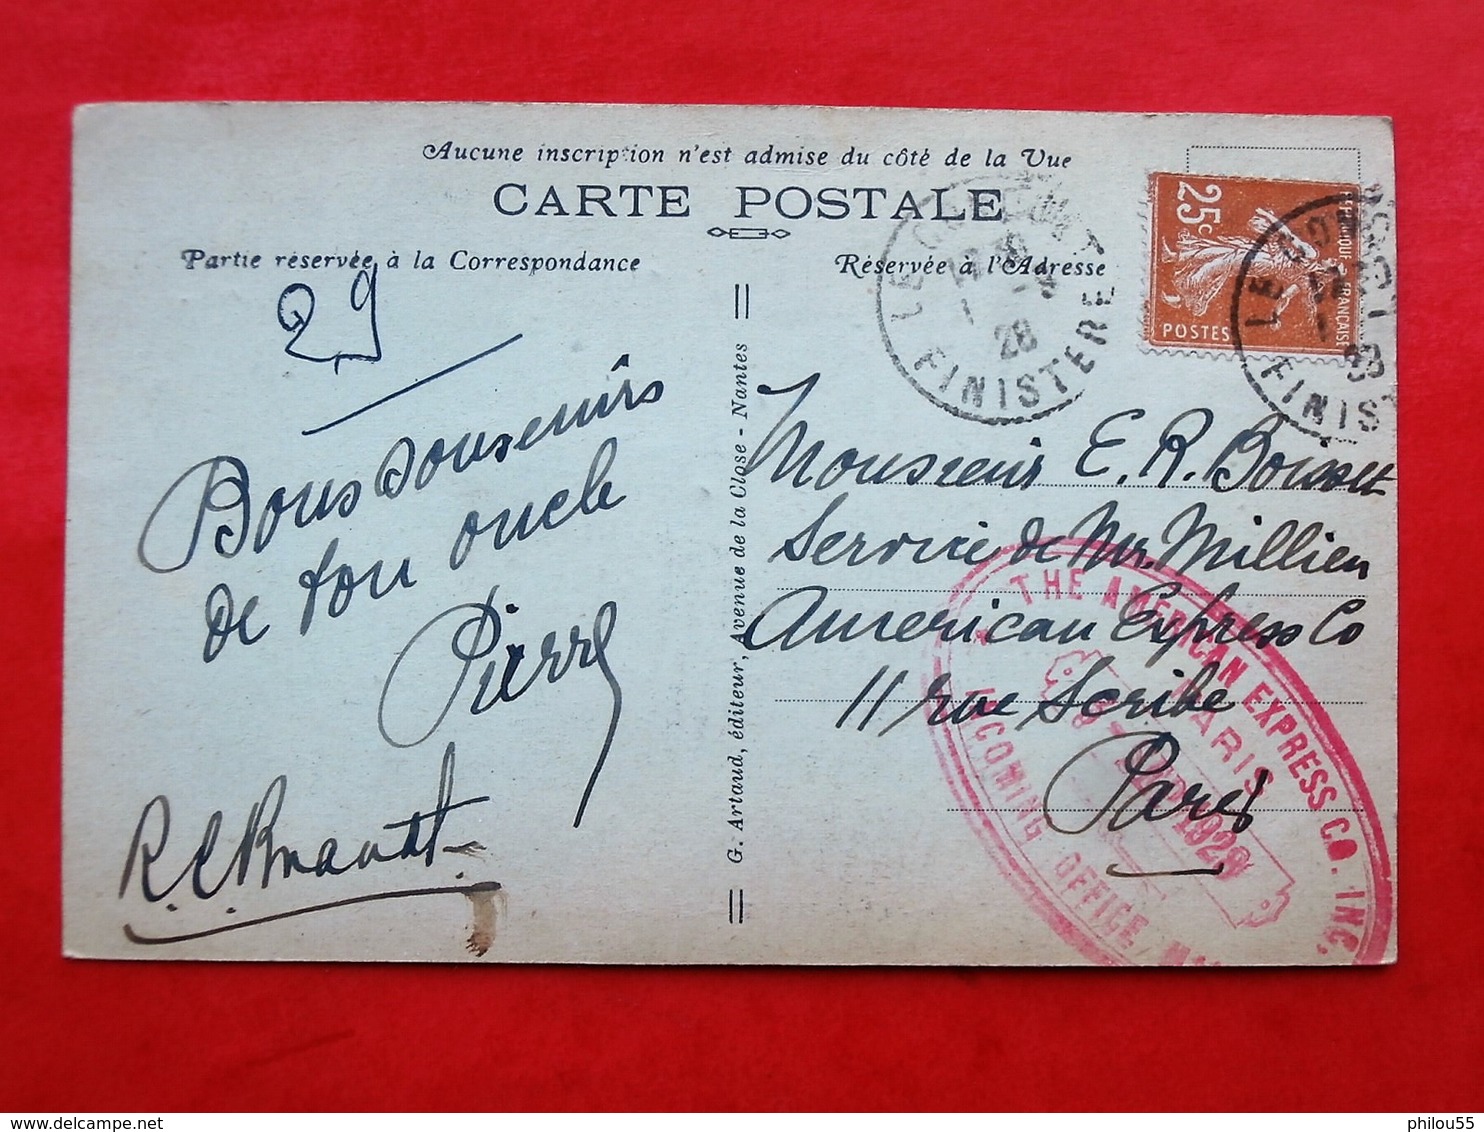 Aucune inscription n'est admise du côté de la Vue
CARTE POSTALE
Partie réservée à la Correspondance
Réservée à l'Adresse
29
Bons Souvenirs
de ton oncle
Pierre
G. Artaud, éditeur, Avenue de la Close - Nantes
25c
POSTES
FRANÇAISE
LE CONQUET
28
FINISTERE
LE CONQUET
FINIS
Monsieur E. R. Boisset
Service de Mr. Millien
American Express Co
11 rue Scribe
Paris
THE AMERICAN EXPRESS CO. INC.
PARIS
INCOMING OFFICE
philou55